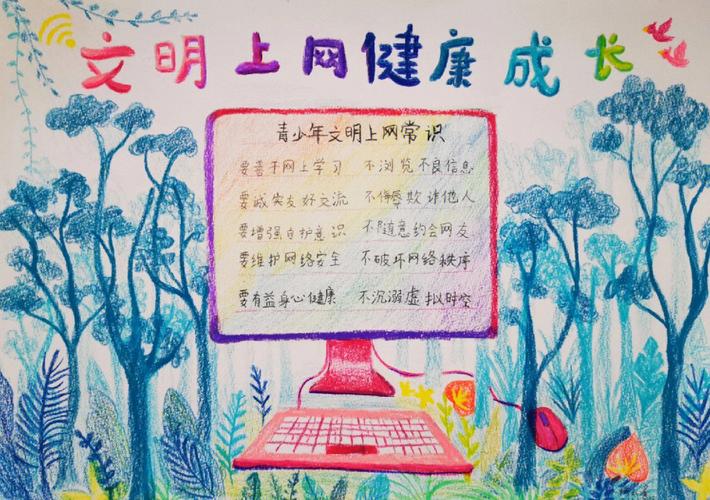 文明上网健康成长
青少年文明上网常识
要善于网上学习 不浏览不良信息
要诚实友好交流 不侮辱欺诈他人
要增强自护意识 不随意约会网友
要维护网络安全 不破坏网络秩序
要有益身心健康 不沉溺虚拟时空